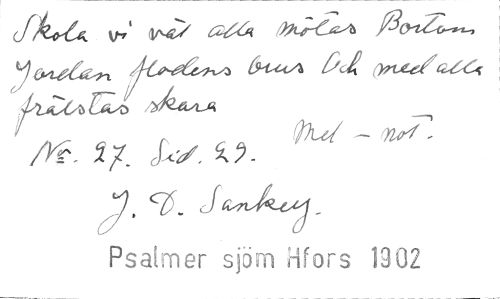 Skola vi väl alla mötas Bortom
Jordan flodens brus Och med alla
frälstas skara
Mel - not.
No. 27. Sid. 29.
J. D. Sankey.
Psalmer sjöm Hfors 1902